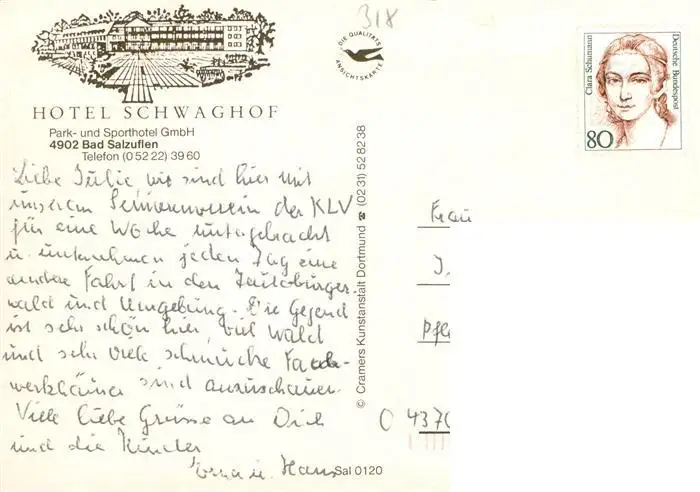 318
DIE QUALITÄTS
ANSICHTSKARTE
Clara Schumann
Deutsche Bundespost
80
HOTEL SCHWAGHOF
Park- und Sporthotel GmbH
4902 Bad Salzuflen
Telefon (0 52 22) 39 60
Liebe Julie, wir sind hier mit
unserem Seniorenverein der KLV
für eine Woche untergebracht
u. unternehmen jeden Tag eine
andere Fahrt in den Teutoburger
wald und Umgebung. Die Gegend
ist sehr schön hier, viel Wald
und sehr viele schmucke Fach-
werkhäuser sind anzuschauen.
Viele liebe Grüsse an Dich
und die Kinder
Erna u. Hans
Sal 0120
© Cramers Kunstanstalt Dortmund ☎ (02 31) 52 82 38
Frau
J.
Pfl
O 4370